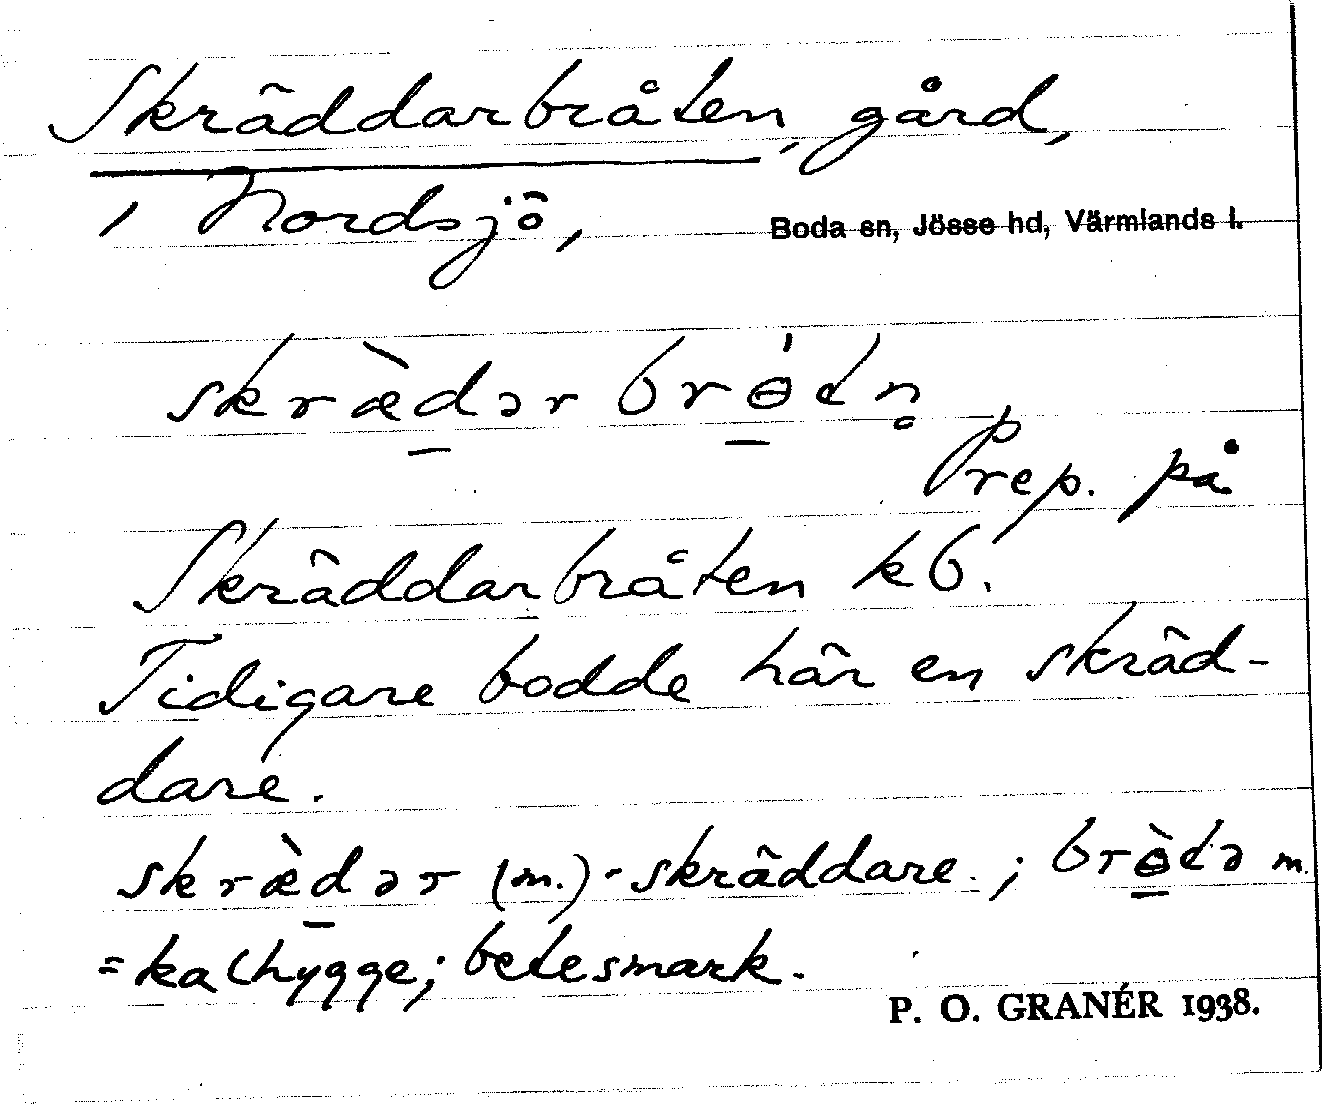 Skräddarbråten, gård,
i Nordsjö, Boda sn, Jösse hd, Värmlands l.
skræ̀dər brɵ́tn̥
Prep. på
Skräddarbråten kb.
Tidigare bodde här en skräd-
dare.
skræ̀dər (m.) - skräddare. ; brɵ̀tə m.
= kalhygge; betesmark.
P. O. GRANÉR 1938.